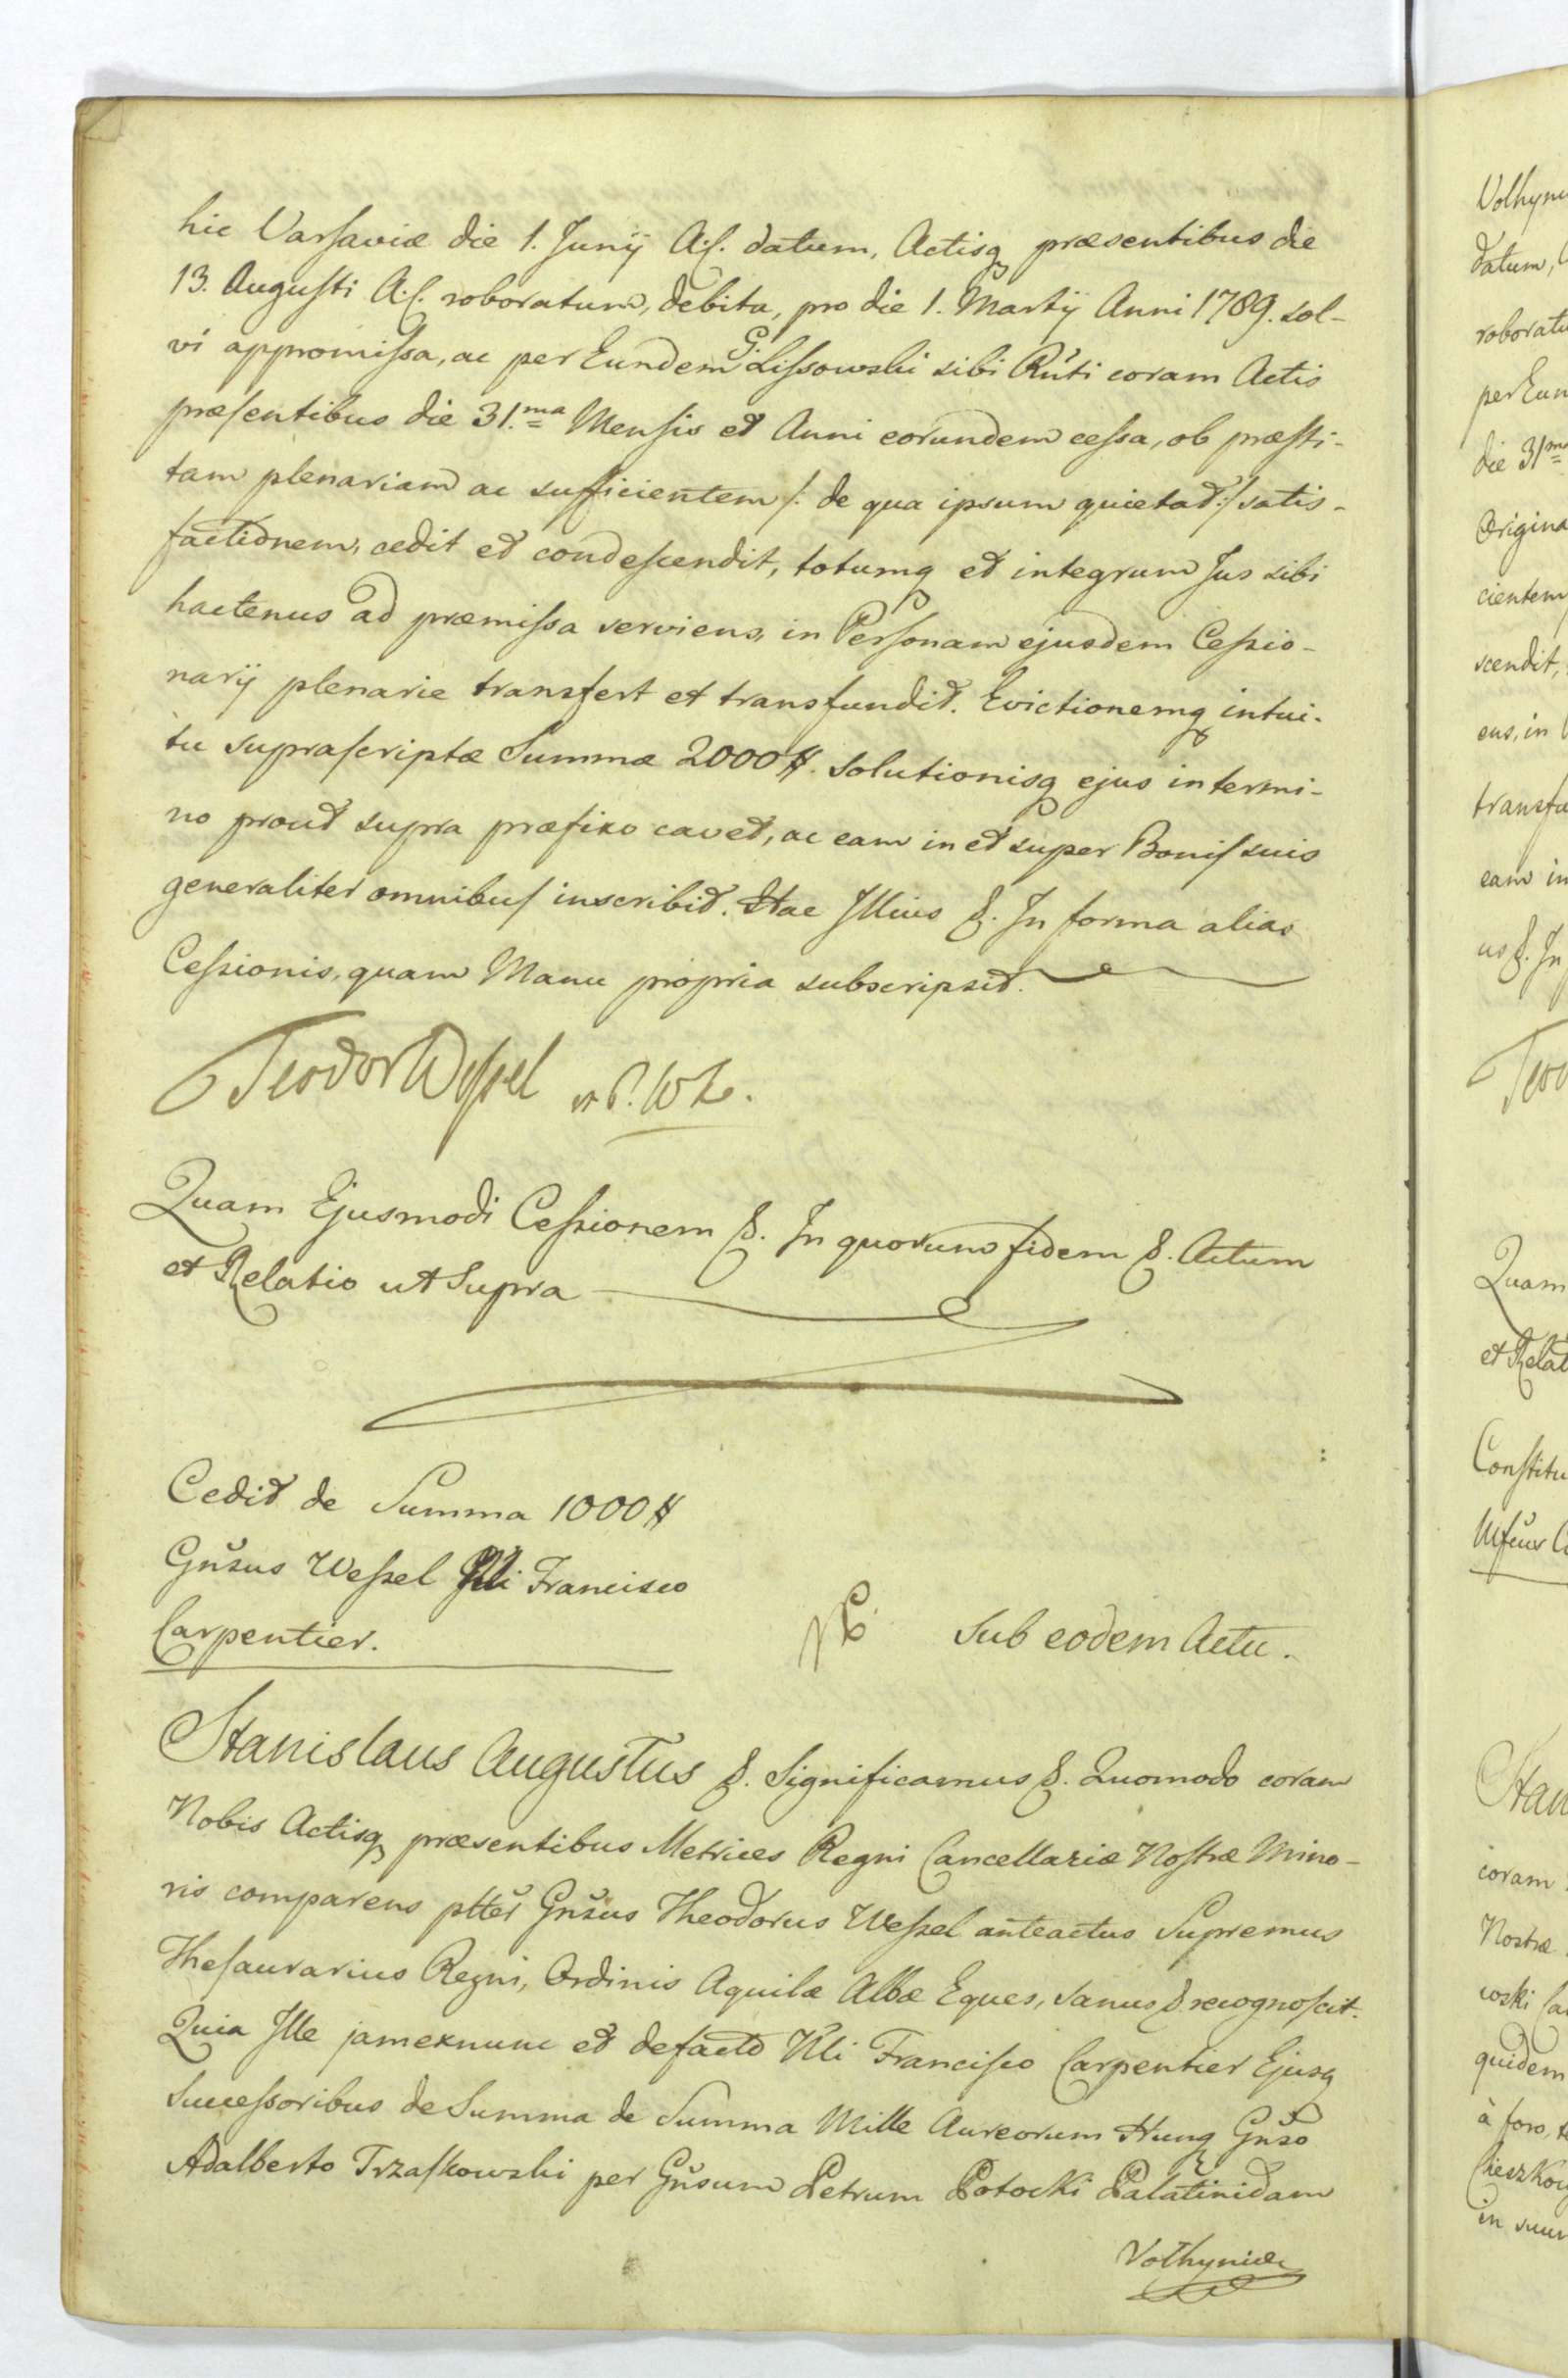 hic Varsaviæ die 1. Junij A.c. datum, Actisq præsentibus die
13. Augusti A.c. roboratum, debita, pro die 1. Martij Anni 1789. sol-
vi appromissa, ac per Eundem G. Lissowski sibi Rńti coram Actis
præsentibus die 31.ma Mensis et Anni eorundem cessa, ob præsti-
tam plenariam ac sufficientem /: de qua ipsum quietat :/ satis-
factionem, cedit et condescendit, totumq et integrum Jus sibi
hactenus ad præmissa serviens, in Personam ejusdem Cessio-
narij plenarie transfert et transfundit. Evictionemq intui-
tu suprascriptæ Summæ 2000 #. solutionisq ejus in termi-
no prout supra præfixo cavet, ac eam in et super Bonis suis
generaliter omnibus inscribit. Hac Illius &. In forma alias
Cessionis, quam Manu propria subscripsit.
Teodor Wessel
Quam Ejusmodi Cessionem &. In quorum fidem &. Actum
et Relatio ut Supra
Cedit de Summa 1000 #
Gnsus Wessel Nli Francisco
Carpentier.
Sub eodem Actu.
Stanislaus Augustus &. Significamus &. Quomodo coram
Nobis Actisq præsentibus Metrices Regni Cancellariæ Nostræ Mino-
ris comparens pltter Gnsus Theodorus Wessel anteactus Supremus
Thesaurarius Regni, Ordinis Aquilæ Albæ Eques, sanus &. recognoscit.
Quia Ille jam exnunc et defacto Nli Francisco Carpentier Ejusq
Successoribus de Summa de Summa Mille Aureorum Hung Gnso
Adalberto Trzaskowski per Gnsum Petrum Potocki Palatinidam
Volhyniæ
Volhyni
datum,
roboratu
per Eun
die 31ma
Origina
cientem
scendit,
ens, in
transfu
eam in
us &. In
Teo
Quam
et Relat
Constitu
Stan
coram
Nostræ
wski Ca
quidem
à foro,
Cieszkow
in suu